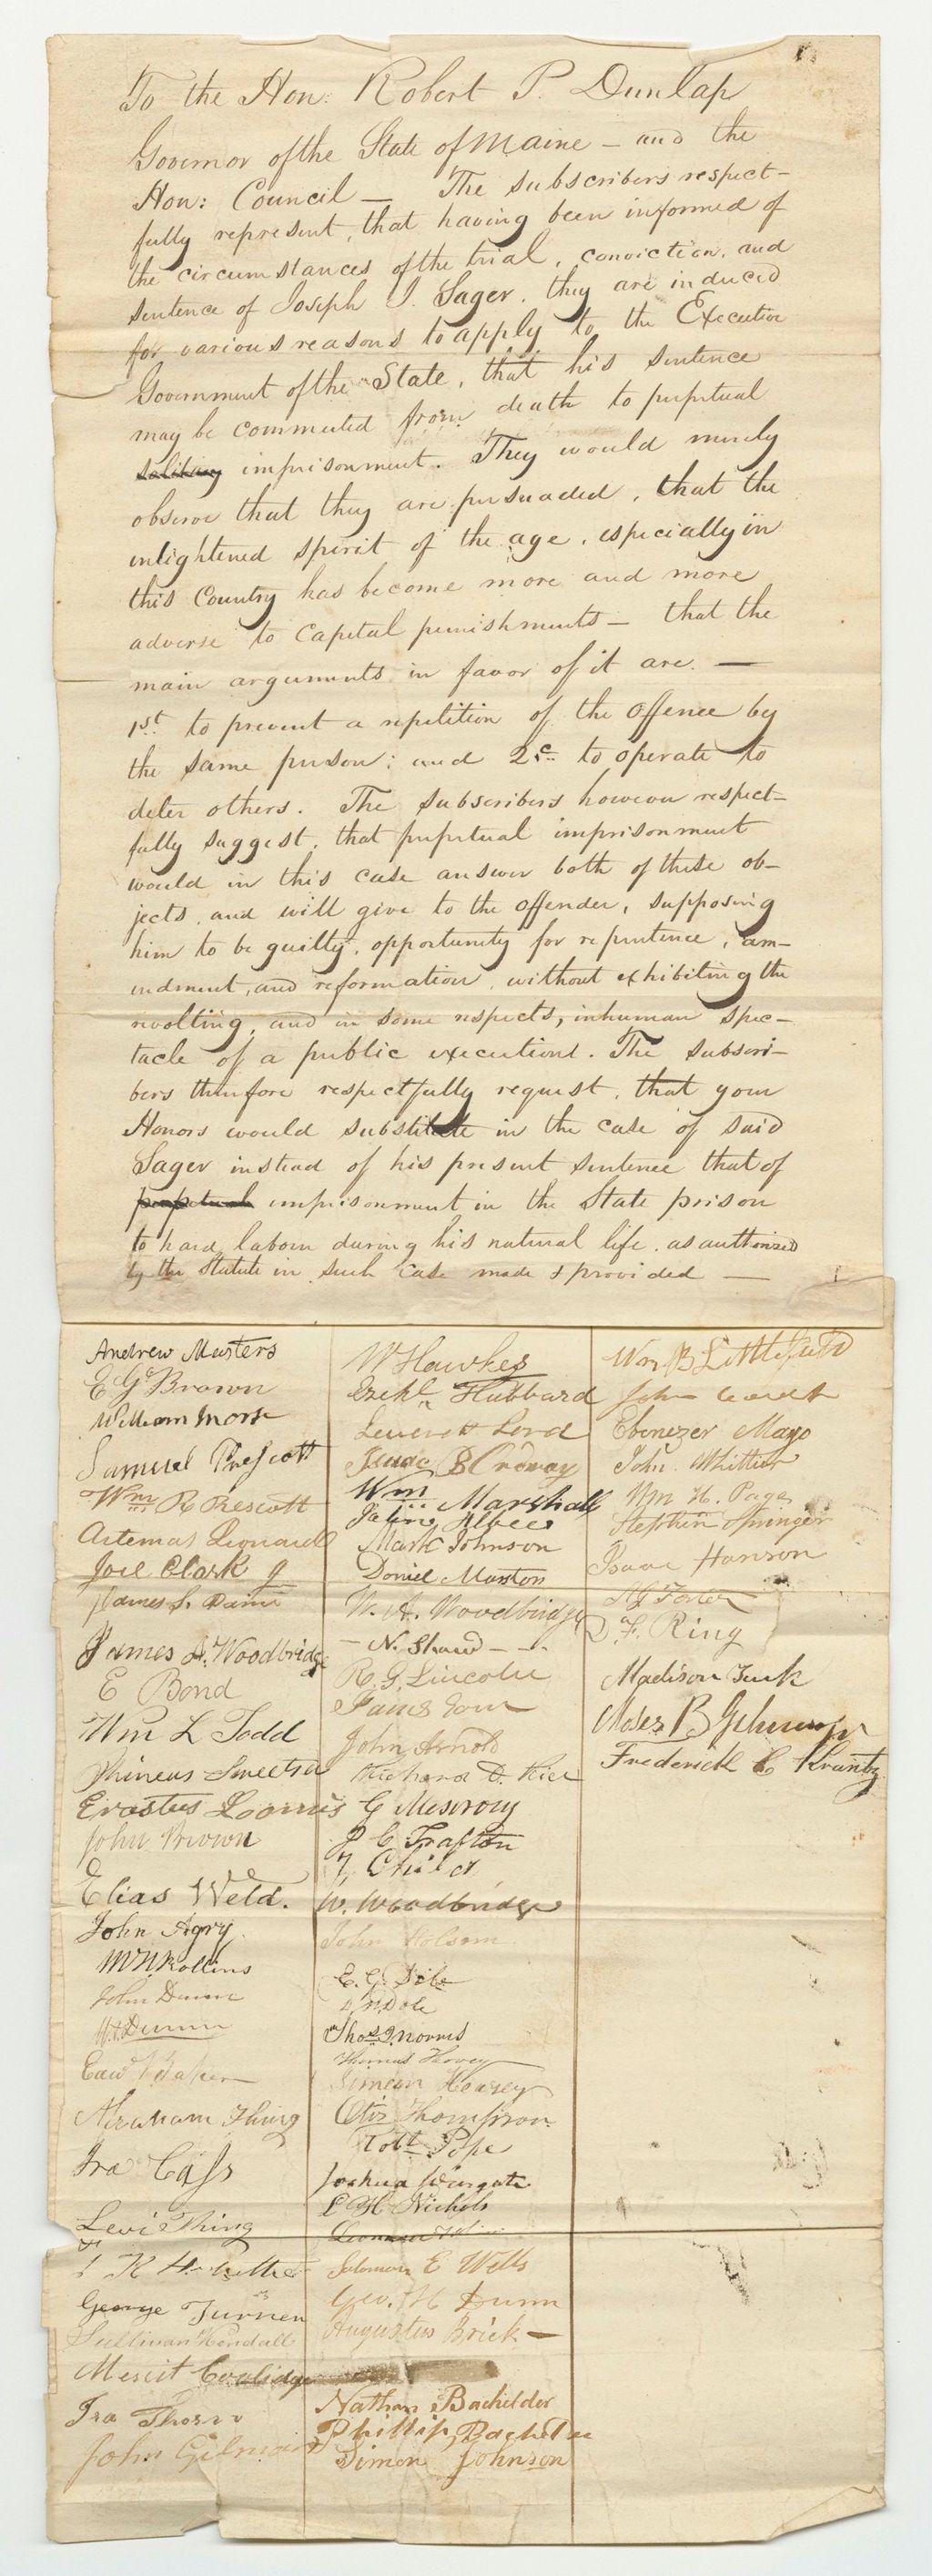 To the Hon: Robert P. Dunlap
Governor of the State of Maine – and the
Hon: Council – The subscribers respect-
fully represent, that having been informed of
the circumstances of the trial, conviction, and
sentence of Joseph J. Sager, they are induced
for various reasons to apply to the Executive
Government of the State, that his sentence
may be commuted from death to perpetual
solitary imprisonment. They would merely
observe that they are persuaded, that the
enlightened spirit of the age, especially in
this Country has become more and more
adverse to capital punishments – that the
main arguments in favor of it are. —
1st. to prevent a repetition of the offence by
the same person; and 2d. to operate to
deter others. The subscribers however respect-
fully suggest, that perpetual imprisonment
would in this case answer both of these ob-
jects, and will give to the offender, supposing
him to be guilty, opportunity for repentence, am-
endment, and reformation, without exhibiting the
revolting, and in some respects, inhuman spec-
tacle of a public execution. The subscri-
bers therefore respectfully request, that your
Honors would substitute in the case of said
Sager instead of his present sentence that of
perpetual imprisonment in the State prison
to hard labour during his natural life, as authorized
by the Statute in such case made & provided —
Andrew Masters
E G Brown
William Morse
Samuel Prescott
Wm R Prescott
Artemas Leonard
Joel Clark Jr
James S. Paine
James A. Woodbridge
E Bond
Wm L Todd
Phineas Sweetser
Erastus Loomis
John Brown
Elias Weld.
John Agry.
Wm Rollins
John Dunn
Edwd Baker
Abraham Thing
Ira Cass
Levi Thing
George Turner
Sullivan Kendall
Merrit Coolidge
Ira Thorn
John Gilman
W Hawkes
Ezekl Hubbard
Leverett Lord
Isaac B Ordway
Wm Marshall
Mark Johnson
Daniel Marston
W. A. Woodbridge
– N. Shaw – –
R. G. Lincoln
John Arnold
Richard D. Rice
G Meservey
P C Trafton
J, Child
W. Woodbridge
John Folsom
E. G. Dole
Thos J Norris
Thomas Hovey
Simeon Hearsey
Otis Thompson
Robt Pope
Joshua Wingate
L H Nichols
Solomon E Wells
Geo. H Dunn
Augustus Brick –
Nathan Bachelder
Phillip Bachelder
Simon Johnson
Wm B Littlefield
Ebenezer Mayo
John Whittier
Wm H. Page
Stephen Springer
Isaac Hanson
D. F. Ring
Madison Tuck
Moses B
Frederick C Krantz